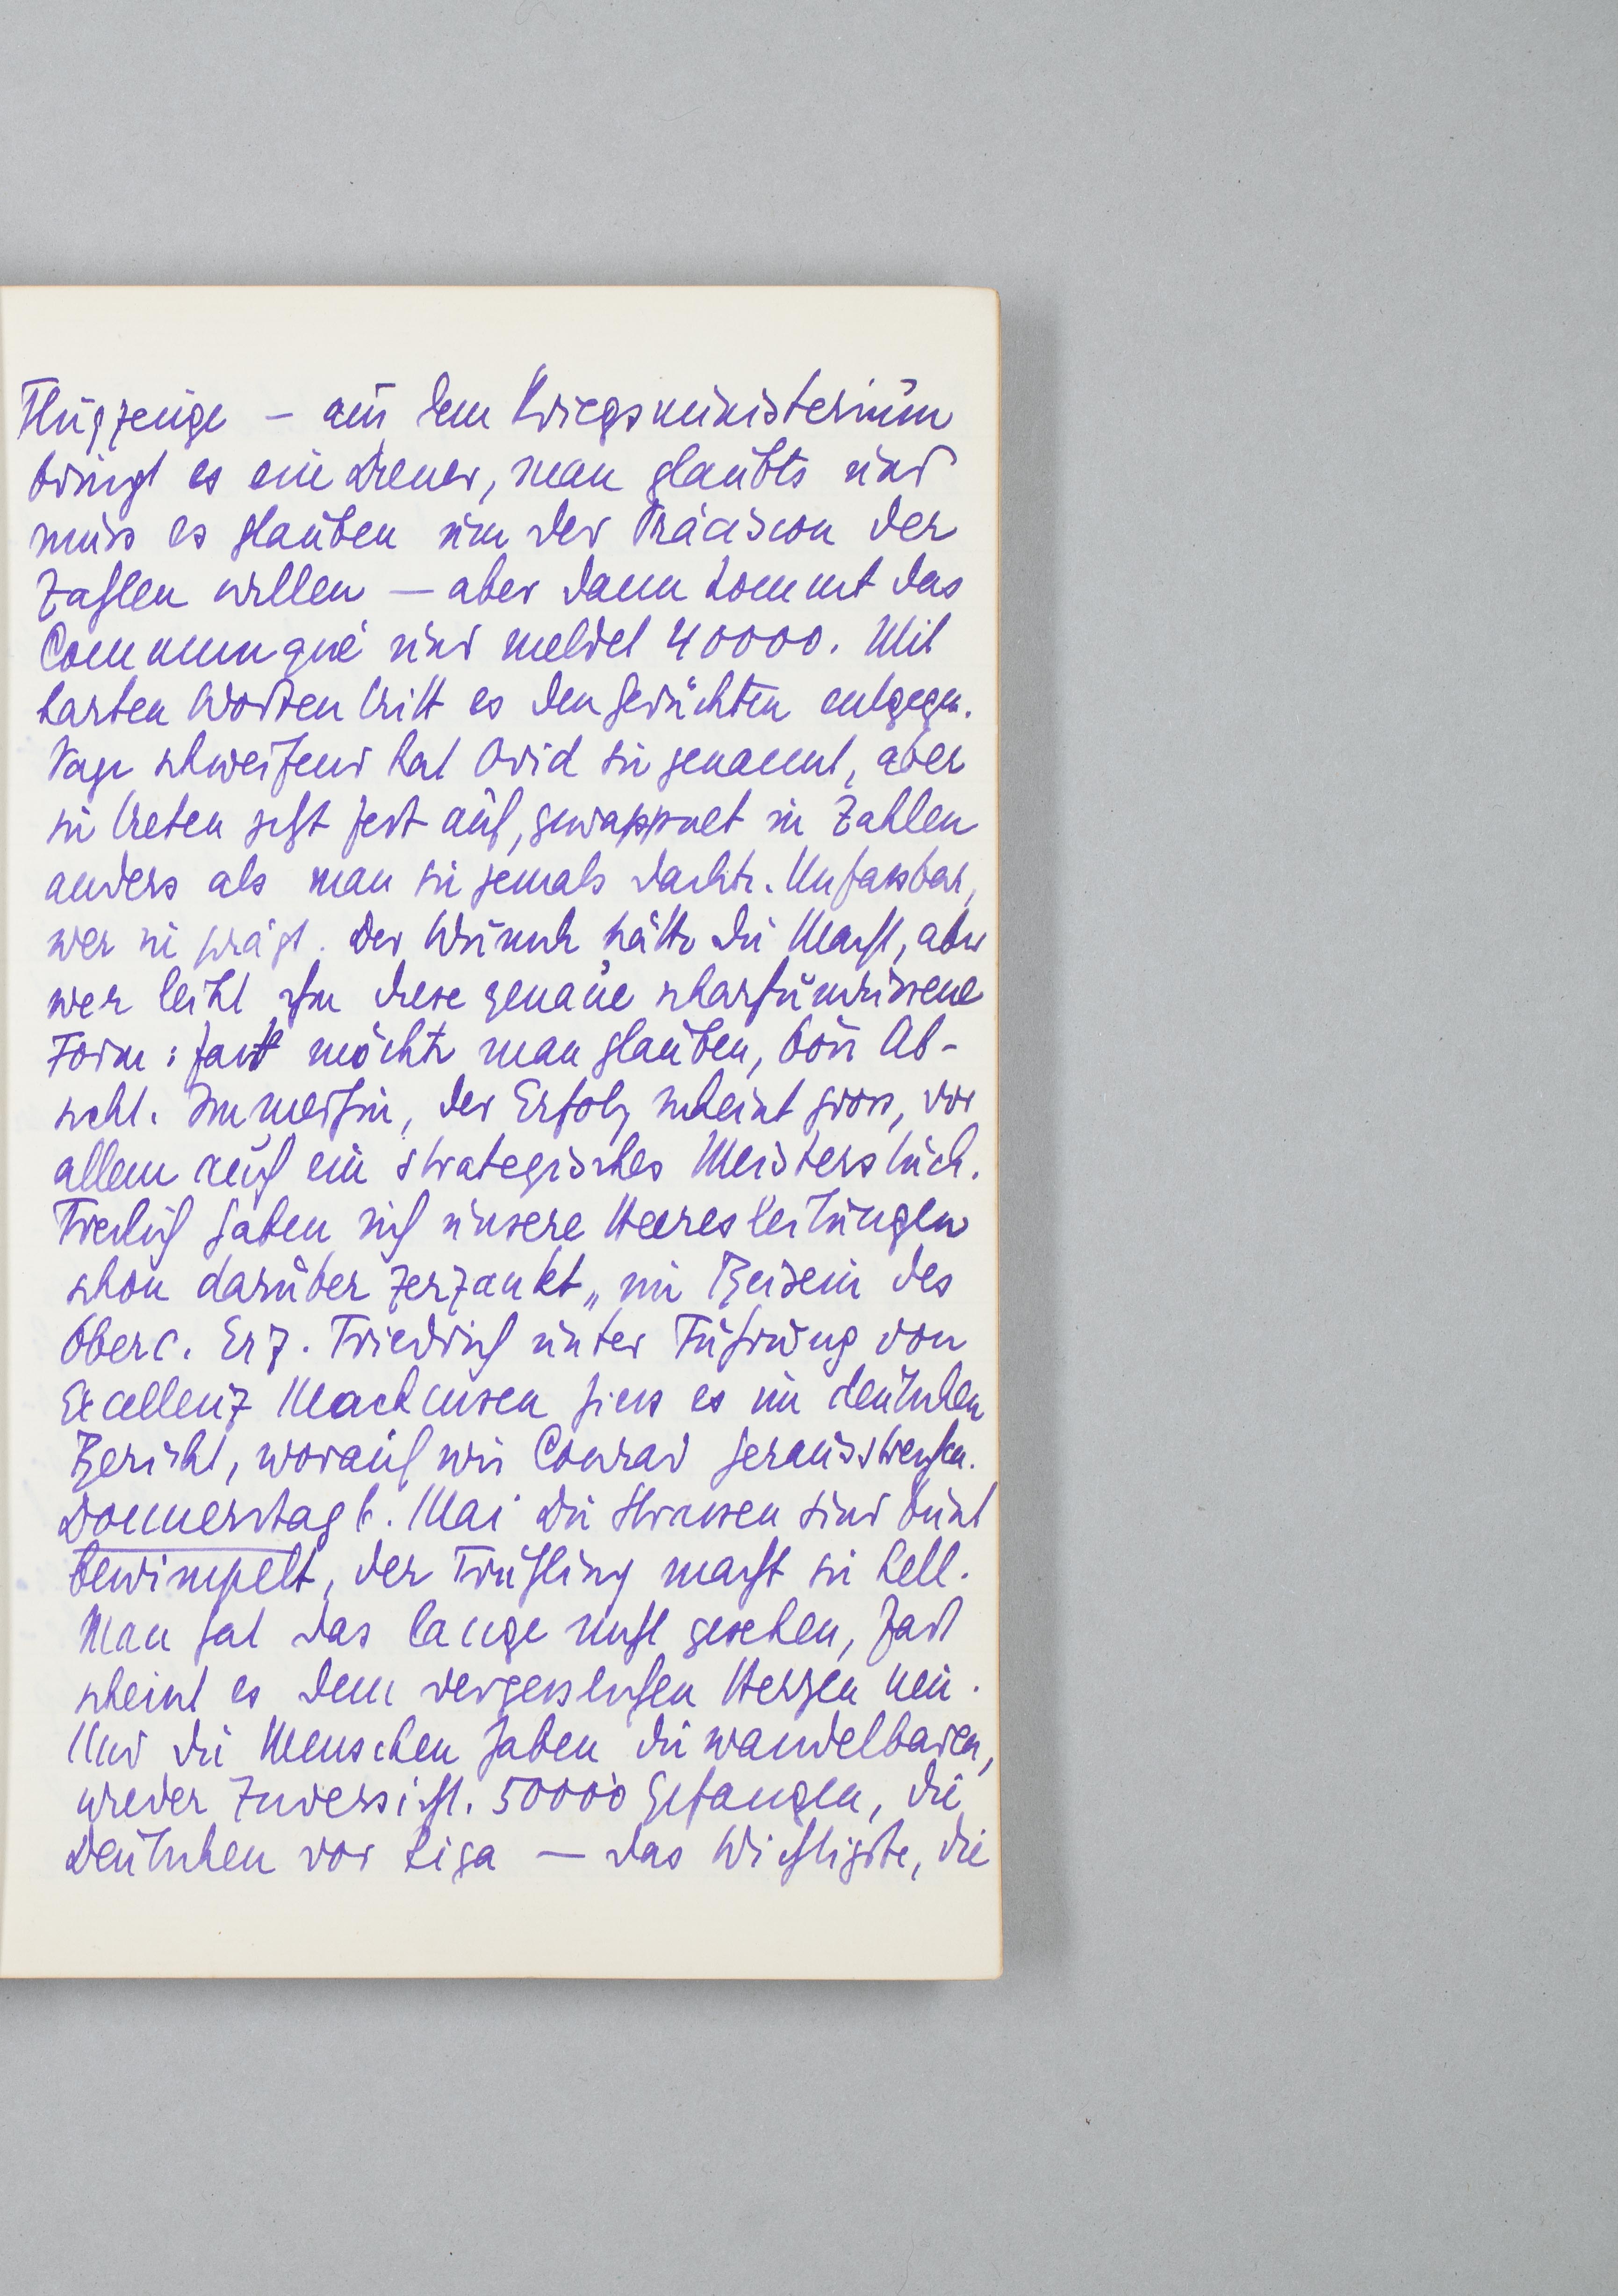 Flugzeuge – aus dem Kriegsministerium
bringt es ein Diener, man glaubts und
muss es glauben um der Präcision der
Zahlen willen – aber dann kommt das
Communiqué und meldet 40000. Mit
harten Worten tritt es den Gerüchten entgegen.
Vage schweifend hat Ovid sie genannt, aber
sie treten jetzt fest auf, gewappnet in Zahlen
anders als man sie jemals dachte. Unfassbar,
wer sie prägt. Der Wunsch hätte die Macht, aber
wer leiht ihm diese genaue scharfumrissene
Form: fast möchte man glauben, böse Ab-
sicht. Immerhin, der Erfolg scheint gross, vor
allem auch ein strategisches Meisterstück.
Freilich haben sich unsere Heeresleitungen
schon darüber zerzankt „im Beisein des
Oberc. Erz. Friedrich unter Führung von
Excellenz Mackensen hiess es im deutschen
Bericht, worauf wir Conrad herausstrichen.
Donnerstag 6. Mai Die Strassen sind bunt
bewimpelt, der Frühling macht sie hell.
Man hat das lange nicht gesehen, fast
scheint es dem vergesslichen Herzen neu.
Und die Menschen haben die wandelbaren,
wieder Zuversicht. 50000 Gefangen, die
Deutschen vor Riga – das Wichtigste, die